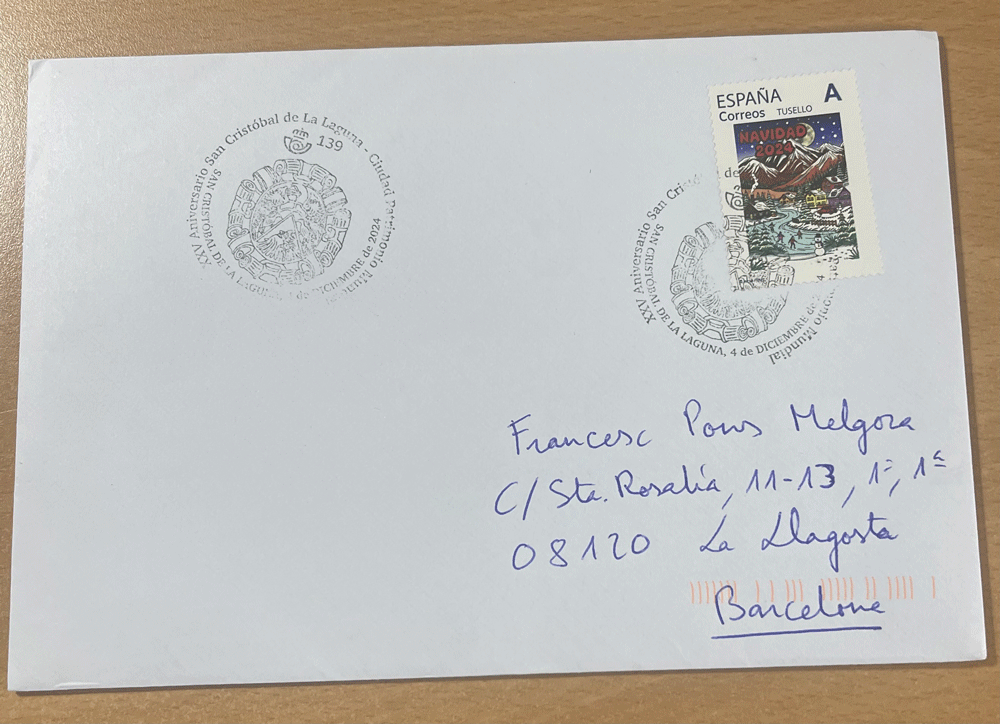 139
XXV Aniversario San Cristóbal de La Laguna - Ciudad Patrimonio Mundial
SAN CRISTÓBAL DE LA LAGUNA, 4 de DICIEMBRE de 2024
ESPAÑA A
Correos TUSELLO
NAVIDAD
2024
XXV Aniversario San Crist de
Mundial
SAN CRISTÓBAL DE LA LAGUNA, 4 de DICIEMBRE de
Francesc Pons Melgora
C/ Sta. Rosalía, 11-13, 1º, 1ª
08120 La Llagosta
Barcelona